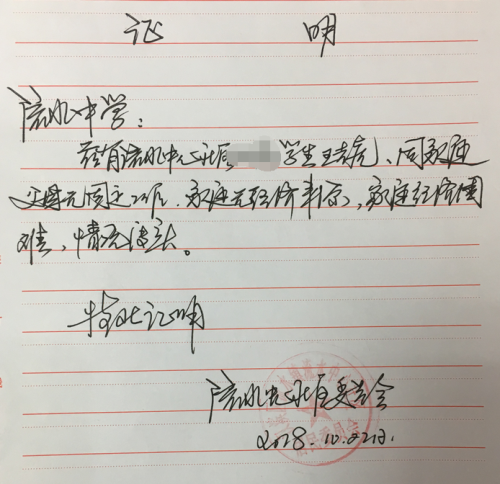 证明
流水中学：
兹有流水中心社居 学生王 、因家庭
父母无固定工作，家庭无经济来源，家庭经济困
难，情况属实。
特此证明
流水中心社居委会
2018.10.22日.